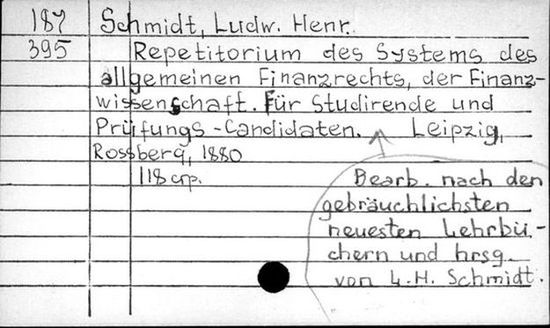 187 Schmidt, Ludw. Henr.
395 Repetitorium des Systems des
allgemeinen Finanzrechts, der Finanz-
wissenschaft. Für Studirende und
Prüfungs-Candidaten. Leipzig,
Rossberg, 1880
118 стр.
Bearb. nach den
gebräuchlichsten
neuesten Lehrbü-
chern und hrsg.
von L.H. Schmidt.